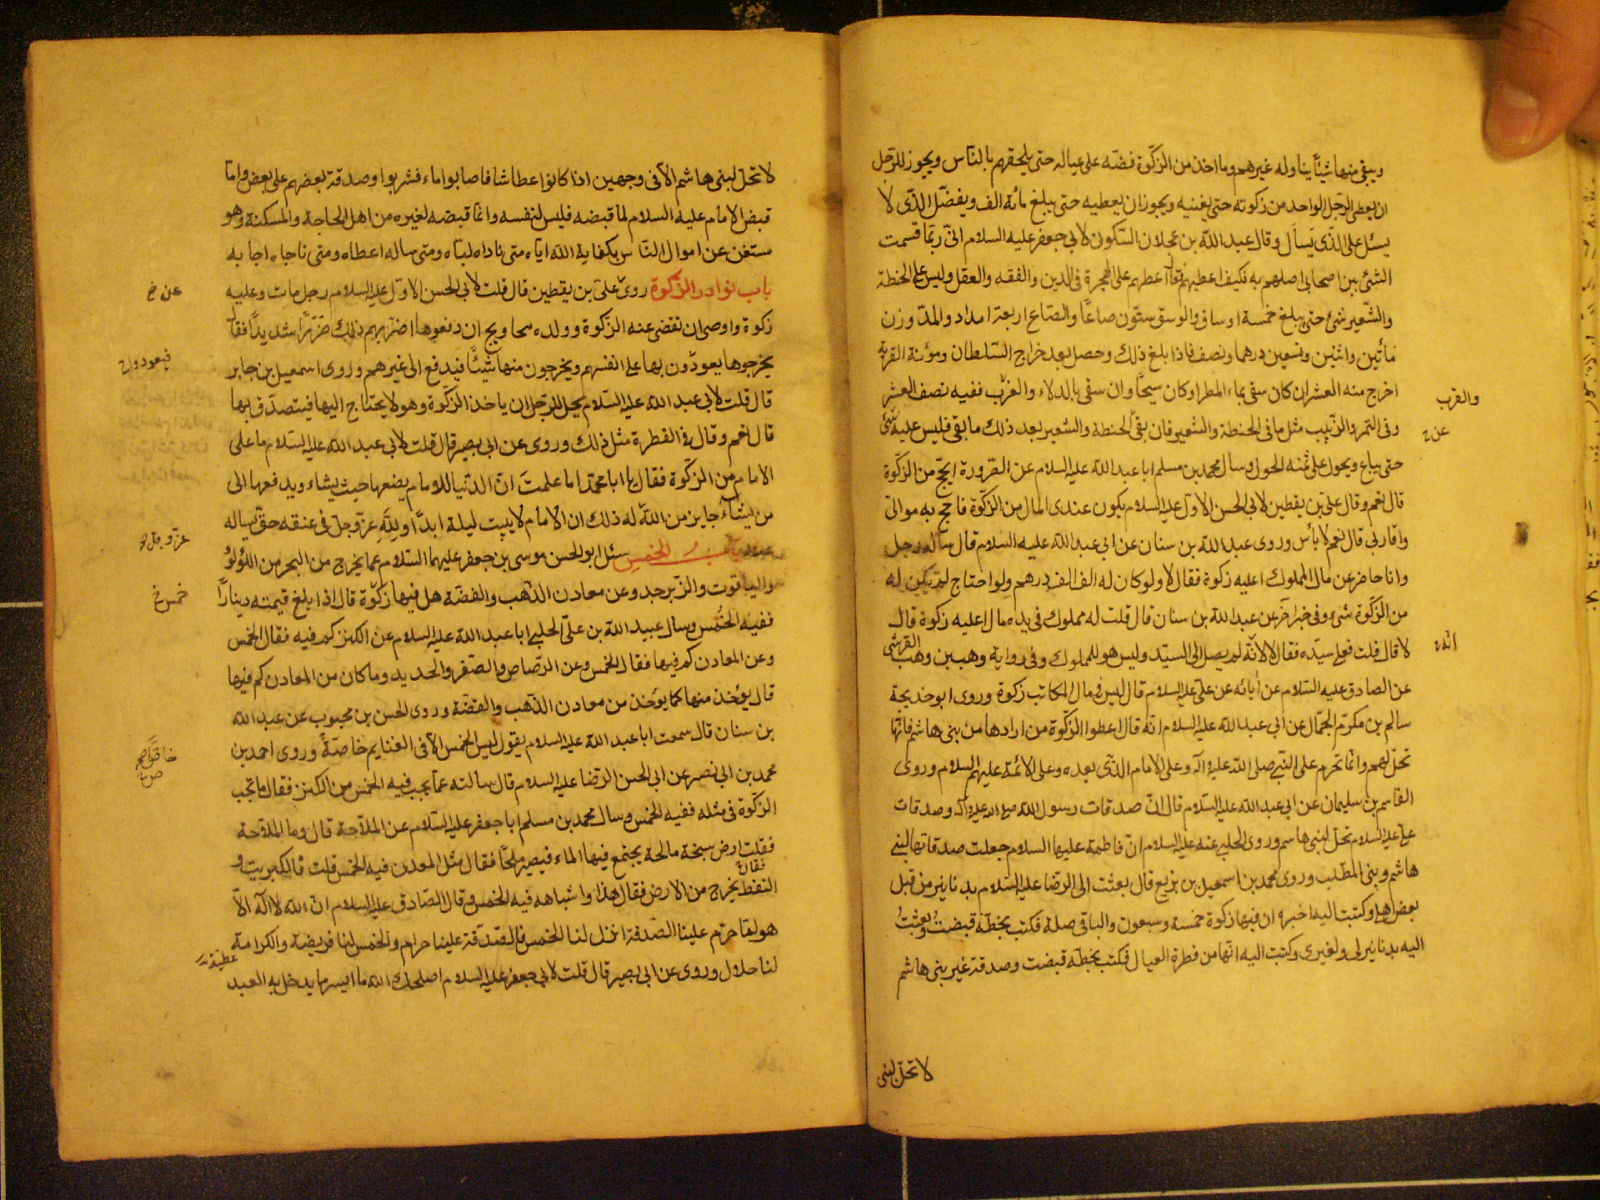 ويبقى منها شيئا يناوله غيرهم وما اخذ من الزكوة فضه على عياله حتى يلحقهم بالناس ويجوز للرجل
ان يعطى الرجل الواحد من زكوته حتى يغنيه ويجوز ان يعطيه حتى يبلغ مائة الف ويفضل الذى لا
يسئل على الذى يسأل وقال عبد الله بن عجلان السكونى لابى جعفر عليه السلام انى ربما قسمت
الشئ بين اصحابى اصلهم به فكيف اعطيهم فقال اعطهم على الهجرة فى الدين والفقه والعقل وليس على الحنطة
والشعير شئ حتى يبلغ خمسة اوساق والوسق ستون صاعا والصاع اربعة امداد والمد وزن
مأتين واثنين وتسعين درهما ونصف فاذا بلغ ذلك وحصل بعد خراج السلطان ومؤنة القرية
اخرج منه العشر ان كان سقى بماء المطر او كان سيحا وان سقى بالدلاء والغرب ففيه نصف العشر
وفى التمر والزبيب مثل ما فى الحنطة والشعير فان بقى الحنطة والشعير بعد ذلك ما بقى فليس عليه شئ
حتى يباع ويحول على ثمنه الحول وسال محمد بن مسلم ابا عبد الله عليه السلام عن الصرورة ايحج من الزكوة
قال نعم وقال على بن يقطين لابى الحسن الاول عليه السلام يكون عندى المال من الزكوة فاحج به موالى
واقاربى قال نعم لا بأس وروى عبد الله بن سنان عن ابى عبد الله عليه السلام قال سأله رجل
وانا حاضر عن مال المملوك اعليه زكوة فقال لا ولو كان له الف الف درهم ولو احتاج لم يكن له
من الزكوة شئ وفى خبر اخر عن عبد الله بن سنان قال قلت له مملوك فى يده مال اعليه زكوة قال
لا قال قلت فعلى سيده فقال لا لانه لم يصل الى السيد وليس هو للمملوك وفى رواية وهب بن وهب القرشى
عن الصادق عليه السلام عن آبائه عن على عليه السلام قال ليس فى مال المكاتب زكوة وروى ابو خديجة
سالم بن مكرم الجمال عن ابى عبد الله عليه السلام انه قال اعطوا الزكوة من ارادها من بنى هاشم فانها
تحل لهم وانما تحرم على النبى صلى الله عليه وآله وعلى الامام الذى بعده وعلى الائمة عليهم السلام وروى
القاسم بن سليمان عن ابى عبد الله عليه السلام قال ان صدقات رسول الله صلى الله عليه وآله وصدقات
على عليه السلام تحل لبنى هاشم وروى الحلبى عنه عليه السلام ان فاطمة عليها السلام جعلت صدقاتها لبنى
هاشم وبنى المطلب وروى محمد بن اسمعيل بن بزيع قال بعثت الى الرضا عليه السلام بدنانير من قبل
بعض اهلى وكتبت اليه اخبره ان فيها زكوة خمسة وسبعون والباقى صلة فكتب بخطه قبضت وبعثت
اليه بدنانير لى ولغيرى وكتبت اليه انها من فطرة العيال فكتب بخطه قبضت وصدقة غير بنى هاشم
لا تحل لبنى
والغرب
عن خ
لا تحل لبنى هاشم الا فى وجهين اذا كانوا عطاشا فاصابوا ماء فشربوا وصدقة بعضهم على بعض واما
قبض الامام عليه السلام لما قبضه فليس لنفسه وانما قبضه لغيره من اهل الحاجة والمسكنة وهو
مستغن عن اموال الناس بكفاية الله اياه متى ناداه لباه ومتى ساله اعطاه ومتى ناجاه اجابه
باب نوادر الزكوة روى على بن يقطين قال قلت لابى الحسن الاول عليه السلام رجل مات وعليه
زكوة واوصى ان تقضى عنه الزكوة وولده محاويج ان دفعوها اضر بهم ذلك ضررا شديدا فقال
يخرجوها يعودون بها على انفسهم ويخرجون منها شيئا فيدفع الى غيرهم وروى اسمعيل بن جابر
قال قلت لابى عبد الله عليه السلام يحل للرجل ان ياخذ الزكوة وهو لا يحتاج اليها فيتصدق بها
قال نعم وقال فى الفطرة مثل ذلك وروى عن ابى بصير قال قلت لابى عبد الله عليه السلام ما على
الامام من الزكوة فقال يا ابا محمد اما علمت ان الدنيا للامام يضعها حيث يشاء ويدفعها الى
من يشاء جايز من الله له ذلك ان الامام لا يبيت ليلة ابدا ولله عز وجل فى عنقه حق يساله
عنه باب الخمس سئل ابو الحسن موسى بن جعفر عليهما السلام عما يخرج من البحر من اللؤلؤ
والياقوت والزبرجد وعن معادن الذهب والفضة هل فيها زكوة قال اذا بلغ قيمته دينارا
ففيه الخمس وسال عبيد الله بن على الحلبى ابا عبد الله عليه السلام عن الكنز كم فيه فقال الخمس
وعن المعادن كم فيها فقال الخمس وعن الرصاص والصفر والحديد وما كان من المعادن كم فيها
قال يؤخذ منها كما يؤخذ من معادن الذهب والفضة وروى الحسن بن محبوب عن عبد الله
بن سنان قال سمعت ابا عبد الله عليه السلام يقول ليس الخمس الا فى الغنايم خاصة وروى احمد بن
محمد بن ابى نصر عن ابى الحسن الرضا عليه السلام قال سالته عما يجب فيه الخمس من الكنز فقال ما تجب
الزكوة فى مثله ففيه الخمس وسال محمد بن مسلم ابا جعفر عليه السلام عن الملاحة قال وما الملاحة
فقلت ارض سبخة مالحة يجتمع فيها الماء فيصير ملحا فقال مثل المعدن فيه الخمس قلت فالكبريت و
النفط يخرج من الارض فقال هذا واشباهه فيه الخمس وقال الصادق عليه السلام ان الله لا اله الا
هو لما حرم علينا الصدقة انزل لنا الخمس فالصدقة علينا حرام والخمس لنا فريضة والكرامة
لنا حلال وروى عن ابى بصير قال قلت لابى جعفر عليه السلام اصلحك الله ما ايسر ما يدخل به العبد
عن خ
فيعودون
عز وجل
خمس خ
فقال